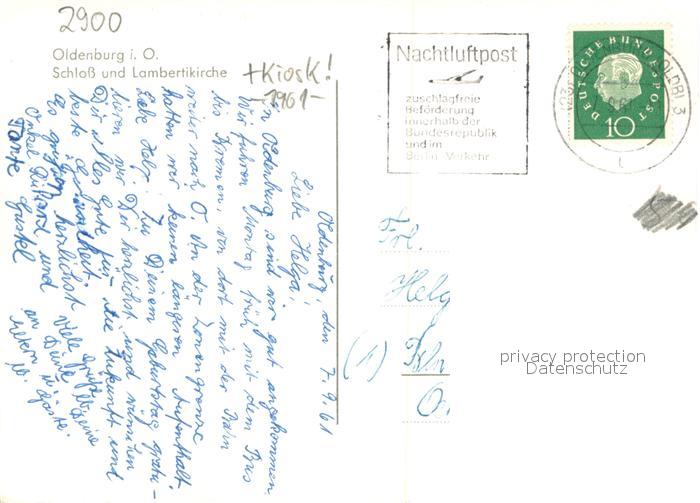 2900
Oldenburg i. O.
Schloß und Lambertikirche
+Kiosk!
-1961-
Nachtluftpost
zuschlagfreie
Beförderung
innerhalb der
Bundesrepublik
und im
Berlin-Verkehr
DEUTSCHE BUNDESPOST
10
Oldenburg, den 7.9.61
Liebe Helga,
In Oldenburg sind wir gut angekommen.
Wir fuhren Montag früh mit dem Bus
bis Bremen, von dort mit der Bahn
weiter nach O. An der Zonengrenze
hatten wir keinen längeren Aufenthalt.
Liebe Helga! Zu Deinem Geburtstag gratu-
lieren wir Dir herzlichst und wünschen
Dir alles Gute für die Zukunft und
beste Gesundheit.
Es grüßen herzlichst
Onkel und
Tante Gustel
Viele Grüße
an Deine lieben
Eltern u.
Frl.
Helg
(1) Bln
O.
privacy protection
Datenschutz